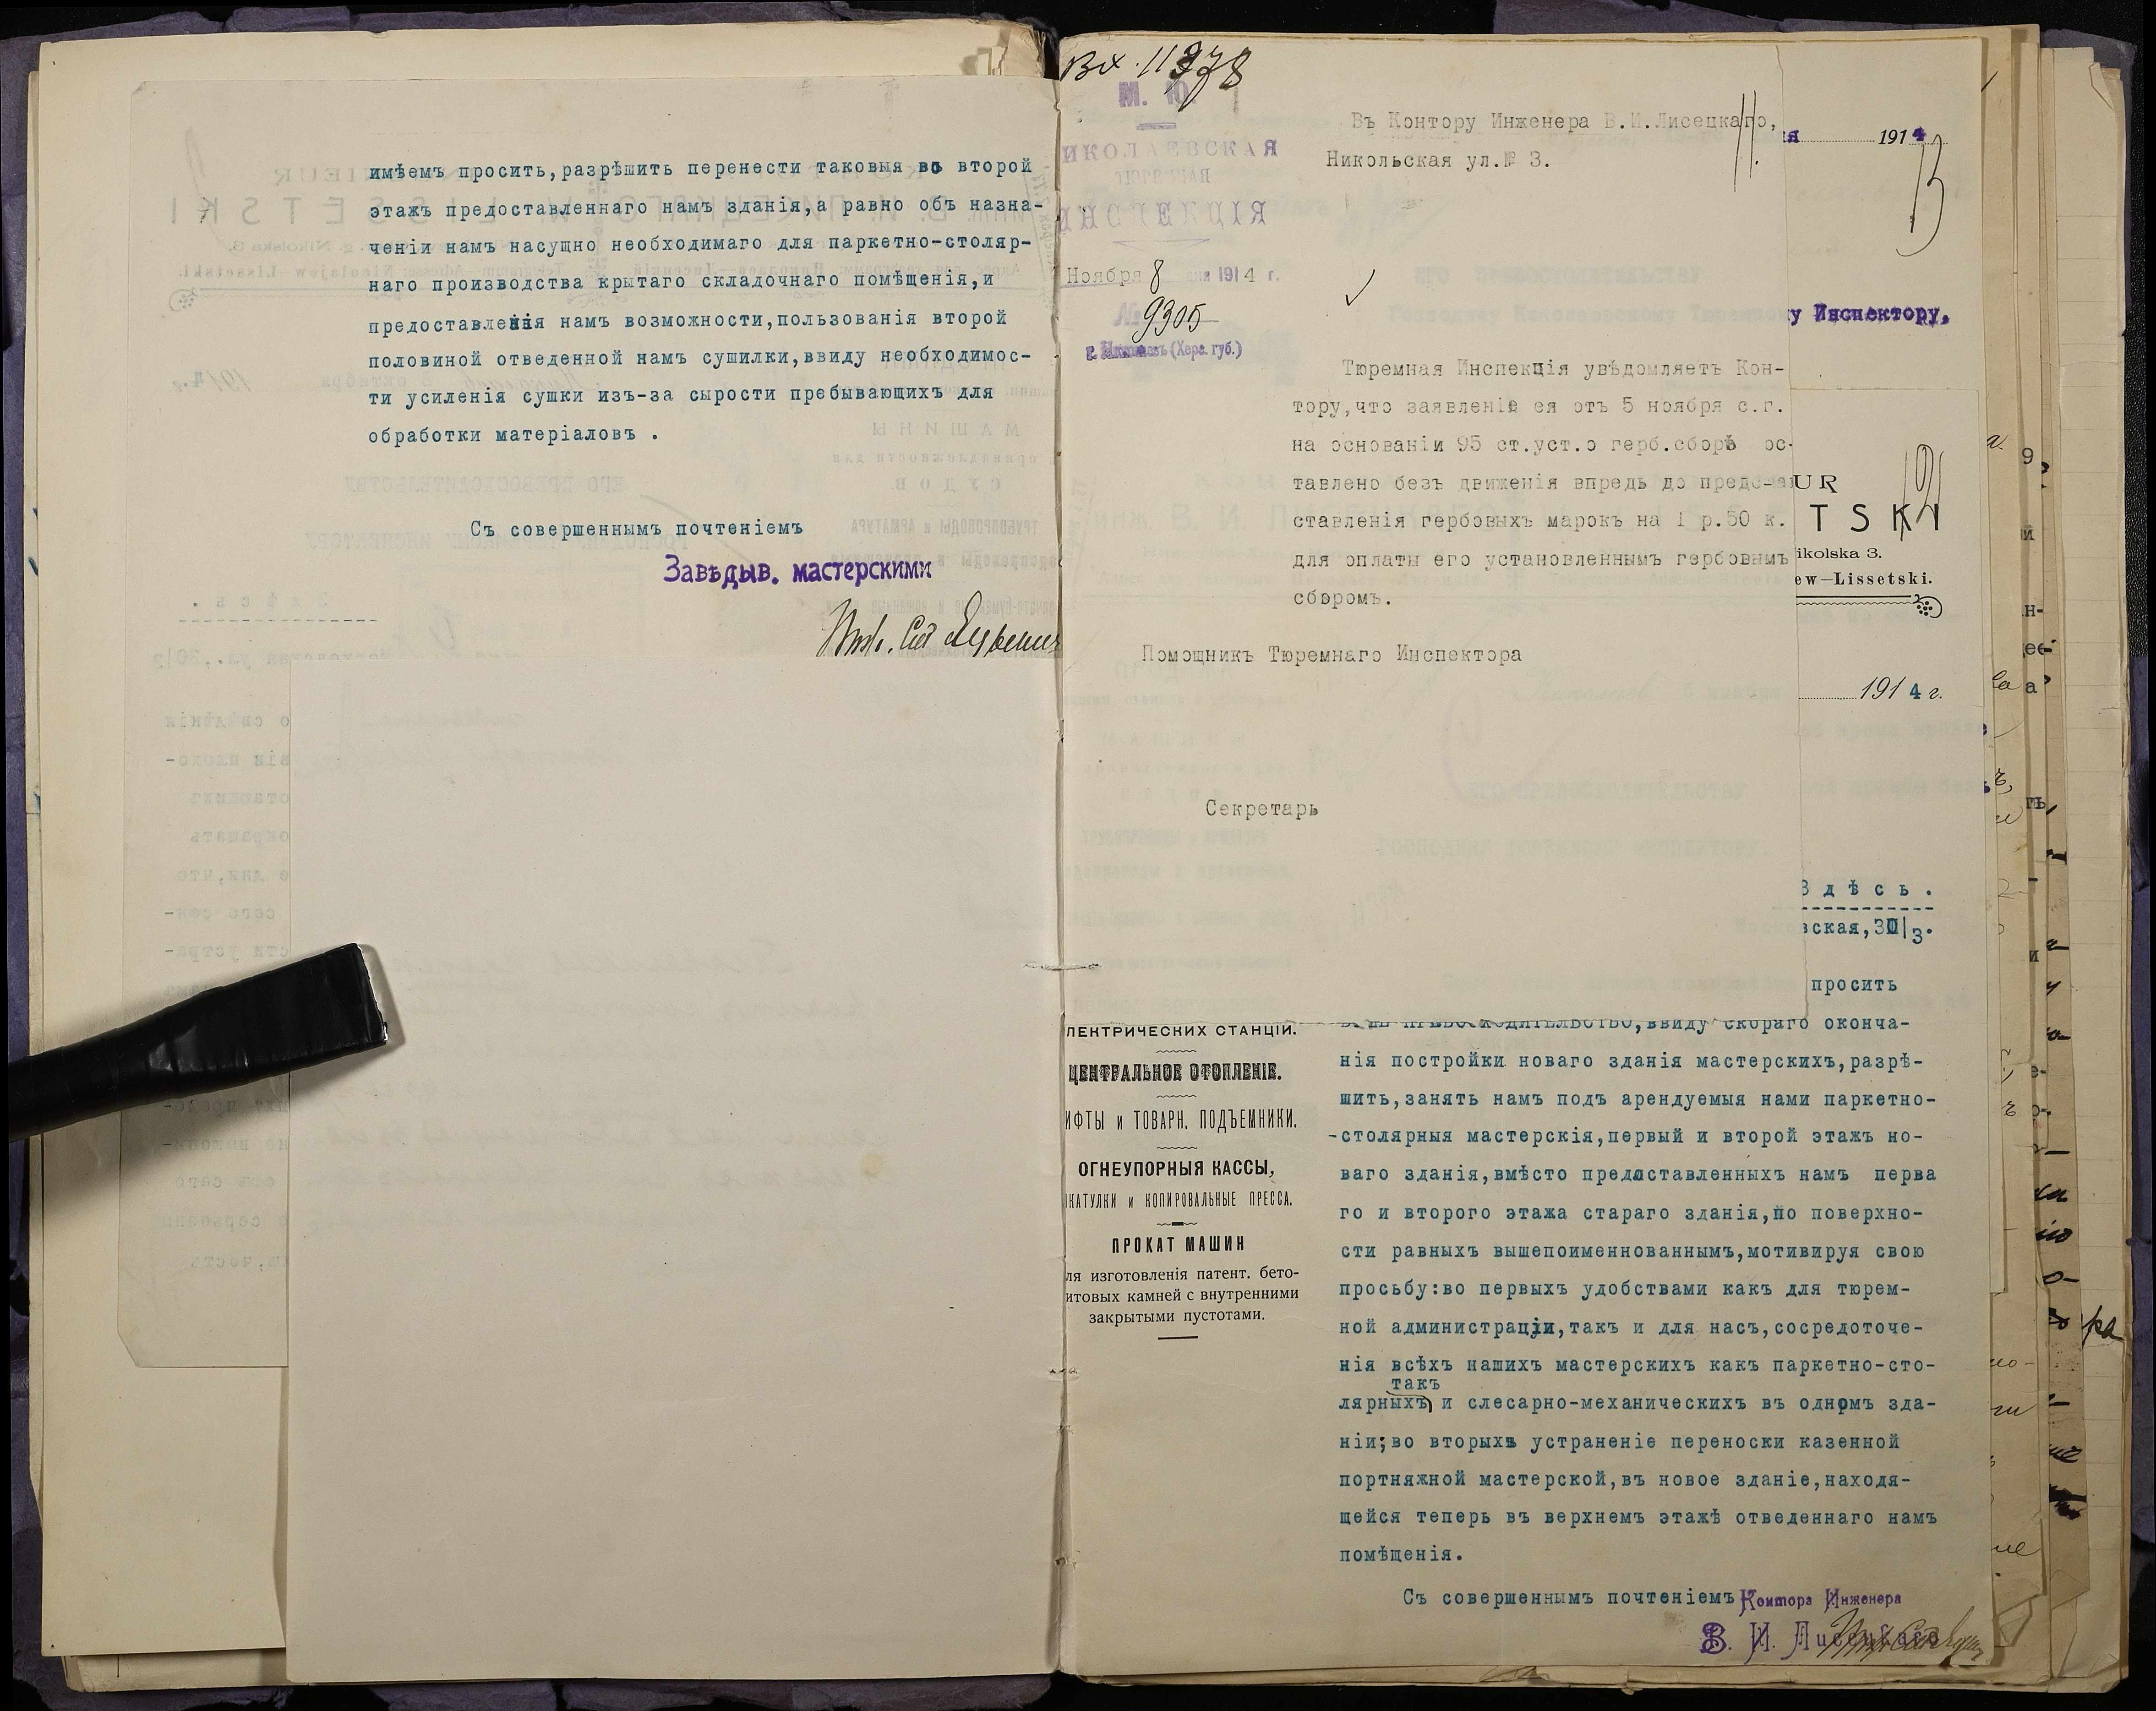 имѣемъ просить,разрѣшить перенести таковыя во второй
этажъ предоставленнаго намъ зданія,а равно объ назна-
ченіи намъ насущно необходимаго для паркетно-столяр-
наго производства крытаго складочнаго помѣщенія,и
предоставленія намъ возможности,пользованія второй
половиной отведенной намъ сушилки,ввиду необходимос-
ти усиленія сушки изъ-за сырости пребывающихъ для
обработки матеріаловъ .
Съ совершеннымъ почтеніемъ
Завѣдыв. мастерскими
Вх. 11378
М. Ю.
НИКОЛАЕВСКАЯ
ТЮРЕМНАЯ
ИНСПЕКЦІЯ
Ноября 8 дня 1914 г.
№ 9305
г. Николаевъ (Херс. губ.)
Въ Контору Инженера В.И.Лисецкаго,
Никольская ул.№ 3.
Тюремная Инспекція увѣдомляетъ Кон-
тору,что заявленіе ея отъ 5 ноября с.г.
на основаніи 95 ст.уст.о герб.сборѣ ос-
тавлено безъ движенія впредь до предс-
ставленія гербовыхъ марокъ на 1 р.50 к.
для оплаты его установленнымъ гербовымъ
сборомъ.
Помощникъ Тюремнаго Инспектора
Секретарь
я 1914
у Инспектору,
UR
TSKI
ikolska 3.
ew—Lissetski.
1914 г.
Здѣсь.
вская,30/3.
просить
ЛЕКТРИЧЕСКИХ СТАНЦІЙ.
ЦЕНТРАЛЬНОЕ ОТОПЛЕНІЕ.
ИФТЫ и ТОВАРН. ПОДЪЕМНИКИ.
ОГНЕУПОРНЫЯ КАССЫ,
КАТУЛКИ и КОПИРОВАЛЬНЫЕ ПРЕССА.
ПРОКАТ МАШИН
ля изготовленія патент. бето-
итовых камней с внутренними
закрытыми пустотами.
ПРЕВОСХОДИТЕЛЬСТВО,ввиду скораго оконча-
нія постройки новаго зданія мастерскихъ,разрѣ-
шить,занять намъ подъ арендуемыя нами паркетно-
-столярныя мастерскія,первый и второй этажъ но-
ваго зданія,вмѣсто предоставленныхъ намъ перва
го и второго этажа стараго зданія,по поверхно-
сти равныхъ вышепоименнованнымъ,мотивируя свою
просьбу:во первыхъ удобствами какъ для тюрем-
ной администраціи,такъ и для насъ,сосредоточе-
нія всѣхъ нашихъ мастерскихъ какъ паркетно-сто-
такъ
лярныхъ и слесарно-механическихъ въ одномъ зда-
ніи;во вторыхъ устраненіе переноски казенной
портняжной мастерской,въ новое зданіе,находя-
щейся теперь въ верхнемъ этажѣ отведеннаго намъ
помѣщенія.
Съ совершеннымъ почтеніемъ
Контора Инженера
В. И. Лисецкаго